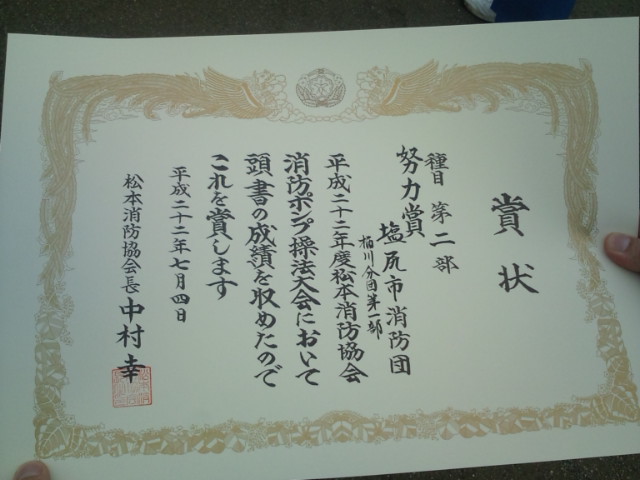 賞状
種目 第二部
努力賞
塩尻市消防団
楢川分団第一部
平成二十二年度松本消防協会
消防ポンプ操法大会において
頭書の成績を収めたので
これを賞します
平成二十二年七月四日
松本消防協会長 中村幸